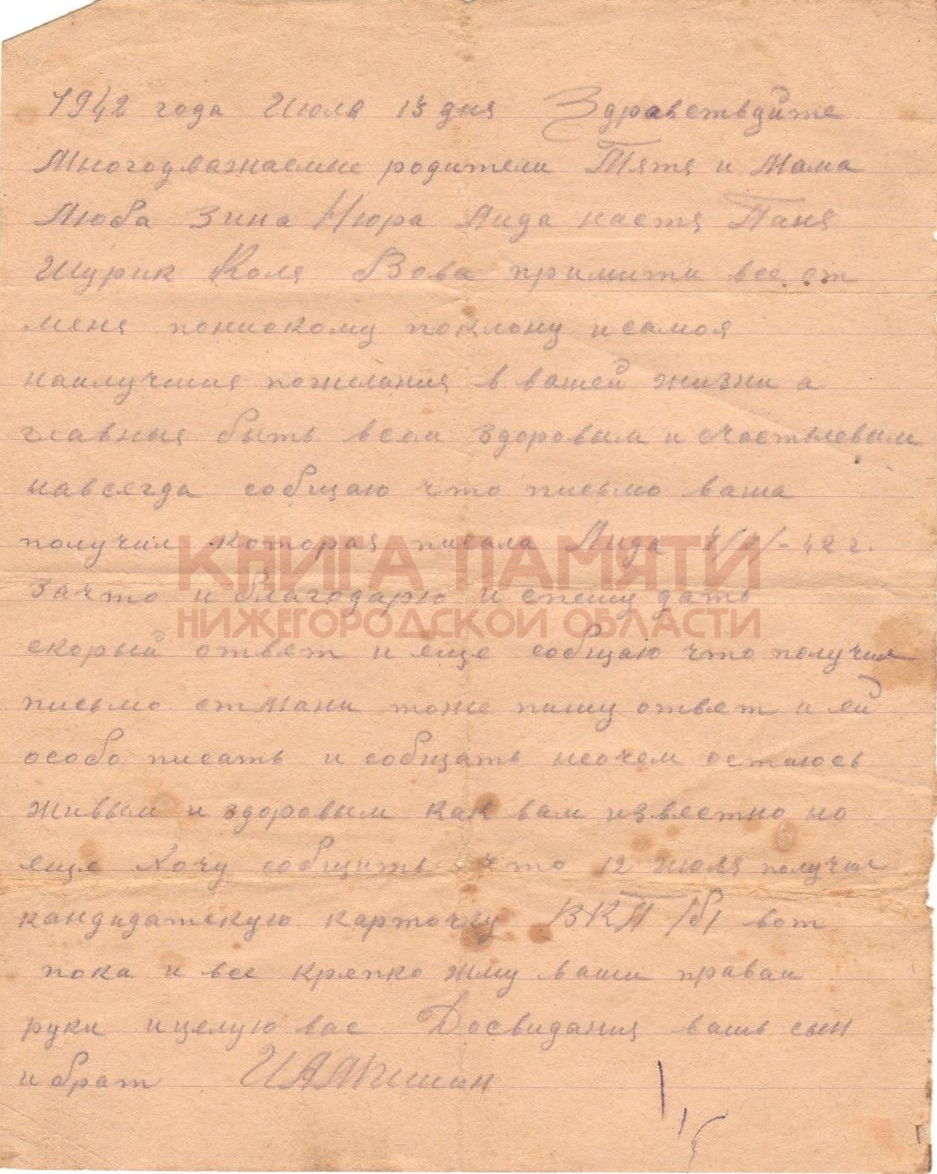 1942 года Июля 13 дня Здравствуйте
Многоуважаемые родители Тятя и Мама
Люба Зина Нюра Лида Кастя Паня
Шурик Коля Вова примити все от
меня понискому поклону и самоя
наилучшия пожелания в вашей жизни а
главныя быть всем здоровым и счастьлевым
навсягда собщаю что письмо ваша
получил которая писала Лида
КНИГА ПАМЯТИ
за что и благодарю и спешу дать
НИЖЕГОРОДСКОЙ ОБЛАСТИ
скорый ответ и еще собщаю что получил
письмо от Мани тоже пишу ответ и ей
особо писать и собщать неочем остаюсь
живым и здоровым как вам известно но
еще хочу собщить что 12 июля получил
кандидатскую карточку ВКП /б/ вот
пока и все крепко жму ваши праваи
руки и целую вас Досвидания вашь сын
и брат